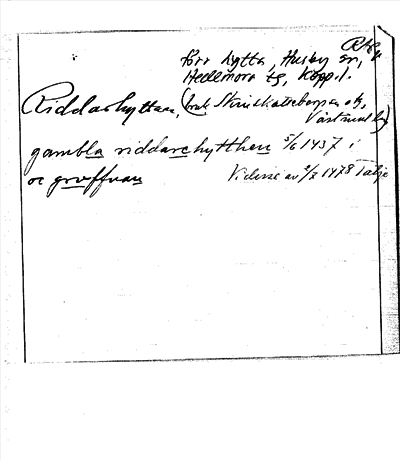 RAÄ
förr hytta, Husby sn,
Hedemora tg, Kopp.l.
Riddarhyttan, (bruk Skinnskattebergs sn,
Västmanl.)
gambla riddarehytthen 5/6 1437 i
oc groffvan Vidisse av 2/7 1478 Tälje